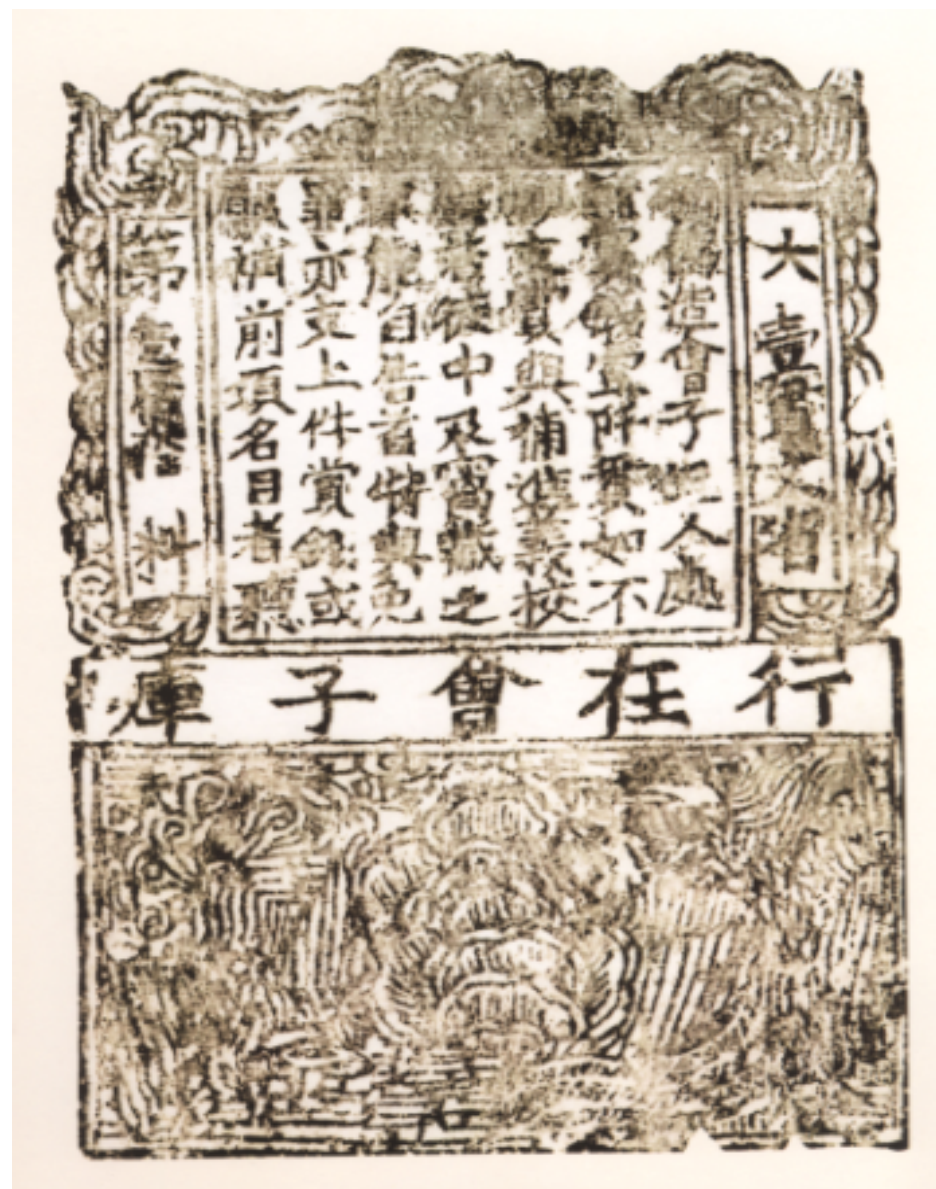 大壹貫文省
偽造會子犯人處
賞錢壹阡貫如不
支賞與補進義校
若徒中及窩藏之
能自告首特與免
罪亦支上件賞錢或
願補前項名目者聽
第料
行在會子庫